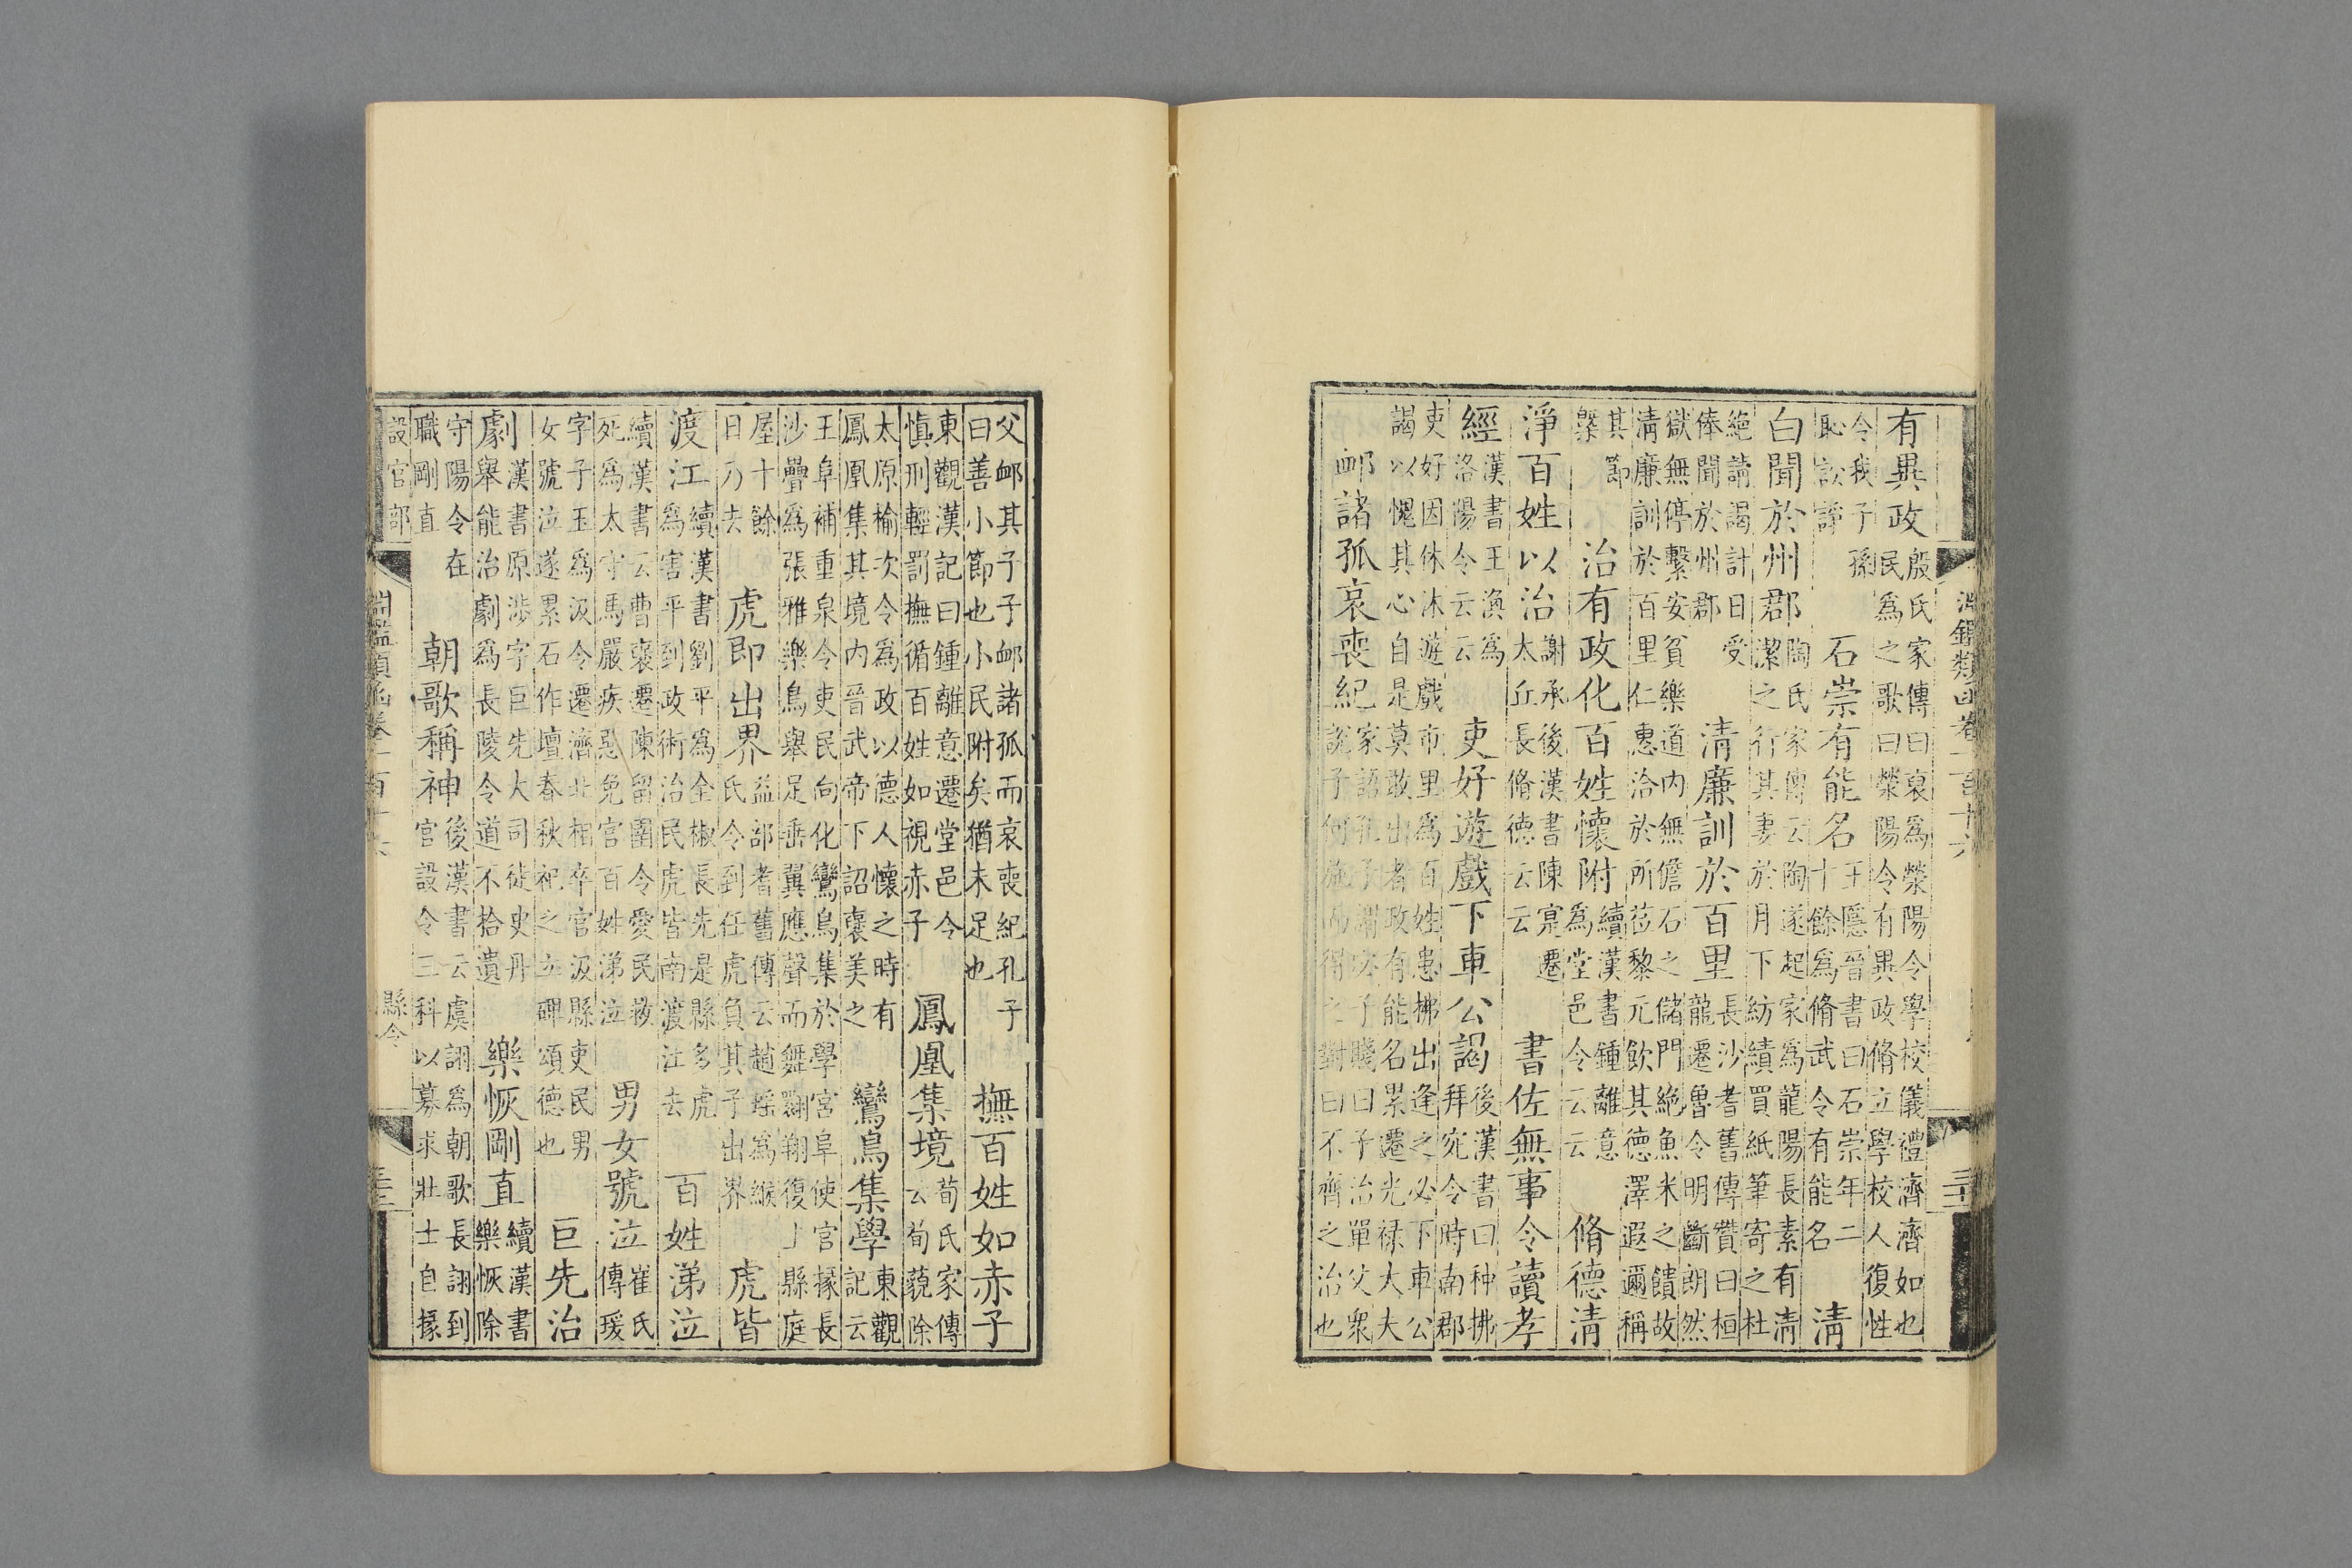 淵鑑類函卷一百十六
有異政
殷氏家傳曰裒為滎陽令學校儀禮濟濟如也
民為之歌曰滎陽令有異政脩立學校人復性
令我子孫
恥訟諍
石崇有能名
王隱晉書曰石崇年二
十餘為脩武令有能名
清
白聞於州郡
陶氏家傳云陶遂起家為龍陽長素有清
潔之行其妻於月下紡績買紙筆寄之杜
絕請謁計日受
俸聞於州郡
清廉訓於百里
長沙耆舊傳贊曰桓
龍遷魯令明斷朗然
獄無停繫安貧樂道內無儋石之儲門絕魚米之饋故
清廉訓於百里仁惠洽於所莅黎元飲其德澤遐邇稱
其節
槩
治有政化百姓懷附
續漢書鍾離意
為堂邑令云云
脩德清
淨百姓以治
謝承後漢書陳寔遷
太丘長脩德云云
書佐無事令讀孝
經
漢書王渙為
洛陽令云云
吏好遊戲下車公謁
後漢書曰种拂
拜宛令時南郡
吏好因休沐遊戲市里為百姓患拂出逢之必下車公
謁以愧其心自是莫敢出者政有能名累遷光祿大夫
卹諸孤哀喪紀
家語孔子謂宓子賤曰子治單父衆
說子何施而得之對曰不齊之治也
父卹其子子卹諸孤而哀喪紀孔子
曰善小節也小民附矣猶未足也
撫百姓如赤子
東觀漢記曰鍾離意遷堂邑令
慎刑輕罰撫循百姓如視赤子
鳳凰集境
荀氏家傳
云荀藐除
太原榆次令為政以德人懷之時有
鳳凰集其境內晉武帝下詔襃美之
鸞鳥集學
東觀
記云
王阜補重泉令吏民向化鸞鳥集於學宮阜使官掾長
沙疊為張雅樂鳥舉足垂翼應聲而舞翾翔復上縣庭
屋十餘
日乃去
虎即出界
益部耆舊傳云趙瑤為緱
氏令到任虎負其子出界
虎皆
渡江
續漢書劉平為全椒長先是縣多虎
為害平到政術治民虎皆南渡江去
百姓涕泣
續漢書云曹襃遷陳留圉令愛民救
死為太守馬嚴疾惡免官百姓涕泣
男女號泣
崔氏
傳瑗
字子玉為汲令遷濟北相卒官汲縣吏民男
女號泣遂累石作壇春秋祀之立碑頌德也
巨先治
劇
漢書原涉字巨先大司徒史丹
舉能治劇為長陵令道不拾遺
樂恢剛直
續漢書
樂恢除
守陽令在
職剛直
朝歌稱神
後漢書云虞詡為朝歌長詡到
官設令三科以募求壯士自掾
設官部
淵鑑類函卷一百十六
縣令